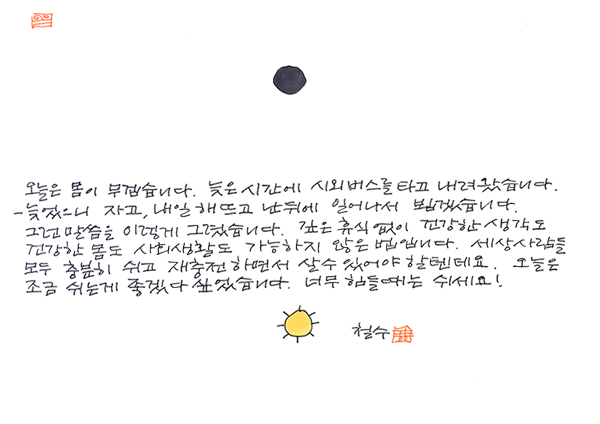 오늘은 몸이 무겁습니다. 늦은 시간에 시외버스를 타고 내려왔습니다.
-늦었으니 자고, 내일 해 뜨고 난 뒤에 일어나서 뵙겠습니다.
그런 말씀을 이렇게 그렸습니다. 깊은 휴식 없이 건강한 생각도
건강한 몸도 사회생활도 가능하지 않은 법입니다. 세상사람들
모두 충분히 쉬고 재충전 하면서 살 수 있어야 할텐데요. 오늘은
조금 쉬는게 좋겠다 싶었습니다. 너무 힘들 때는 쉬세요!
철수